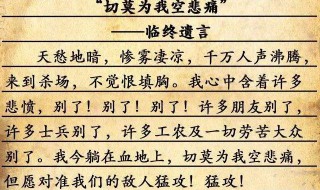 “切莫为我空悲痛”
——临终遗言
天愁地暗，惨雾凄凉，千万人声沸腾，
来到杀场，不觉恨填胸。我心中含着许多
悲愤，别了！别了！别了！许多朋友别了，
许多士兵别了，许多工农及一切劳苦大众
别了。我今躺在血地上，切莫为我空悲痛，
但愿对准我们的敌人猛攻！猛攻！